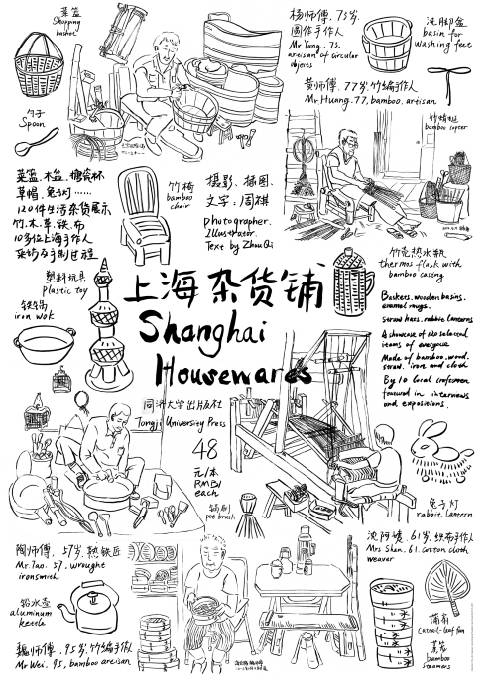 菜篮
Shopping
basket
杨师傅, 73岁,
圆作手作人
Mr Yang, 73,
artisan of circular
objects
洗脚盆
basin for
washing feet
黄师傅, 77岁, 竹编手作人
Mr Huang, 77, bamboo artisan
竹蜻蜓
bamboo copter
勺子
Spoon
菜篮、木盆、搪瓷杯
草帽、兔子灯……
120件生活杂货展示
竹、木、草、铁、布
10多位上海手作人
采访及手制过程
竹椅
bamboo
chair
摄影、插图、
文字:周祺
Photographer.
Illustrator.
Text by Zhou Qi
竹壳热水瓶
thermos flask with
bamboo casing
塑料玩具
plastic toy
铁锅
iron wok
上海杂货铺
Shanghai
Housewares
Baskets, wooden basins,
enamel mugs,
straw hats, rabbit lanterns
A showcase of 120 selected
items of everyday
Made of bamboo, wood,
straw, iron and cloth
By 10 local craftsmen
featured in interviews
and expositions.
同济大学出版社
Tongji University Press
48
元/本
RMB/
each
锅刷
pot brush
兔子灯
rabbit lantern
陶师傅, 57岁, 热铁匠
Mr Tao, 57, wrought
ironsmith
沈阿婆, 61岁, 织布手作人
Mrs Shen, 61, cotton cloth
weaver
铝水壶
aluminum
kettle
蒲扇
Cattail-leaf fan
蒸笼
bamboo
steamers
魏师傅, 95岁, 竹编手作人
Mr Wei, 95, bamboo artisan